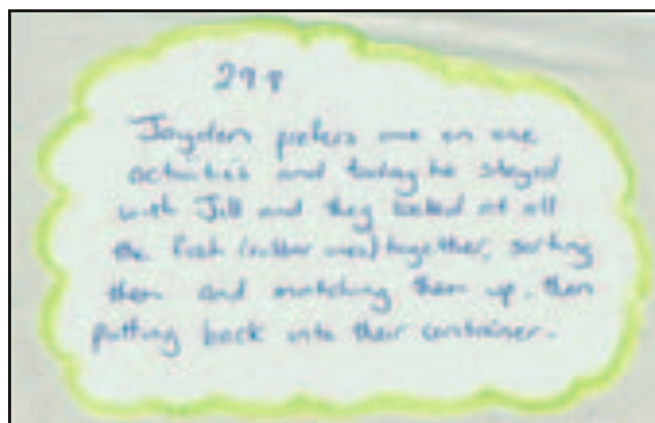 29.8
Jayden prefers one on one
activities and today he stayed
with Jill and they looked at all
the fish (rubber ones) together, sorting
them and matching them up. then
putting back into their container.